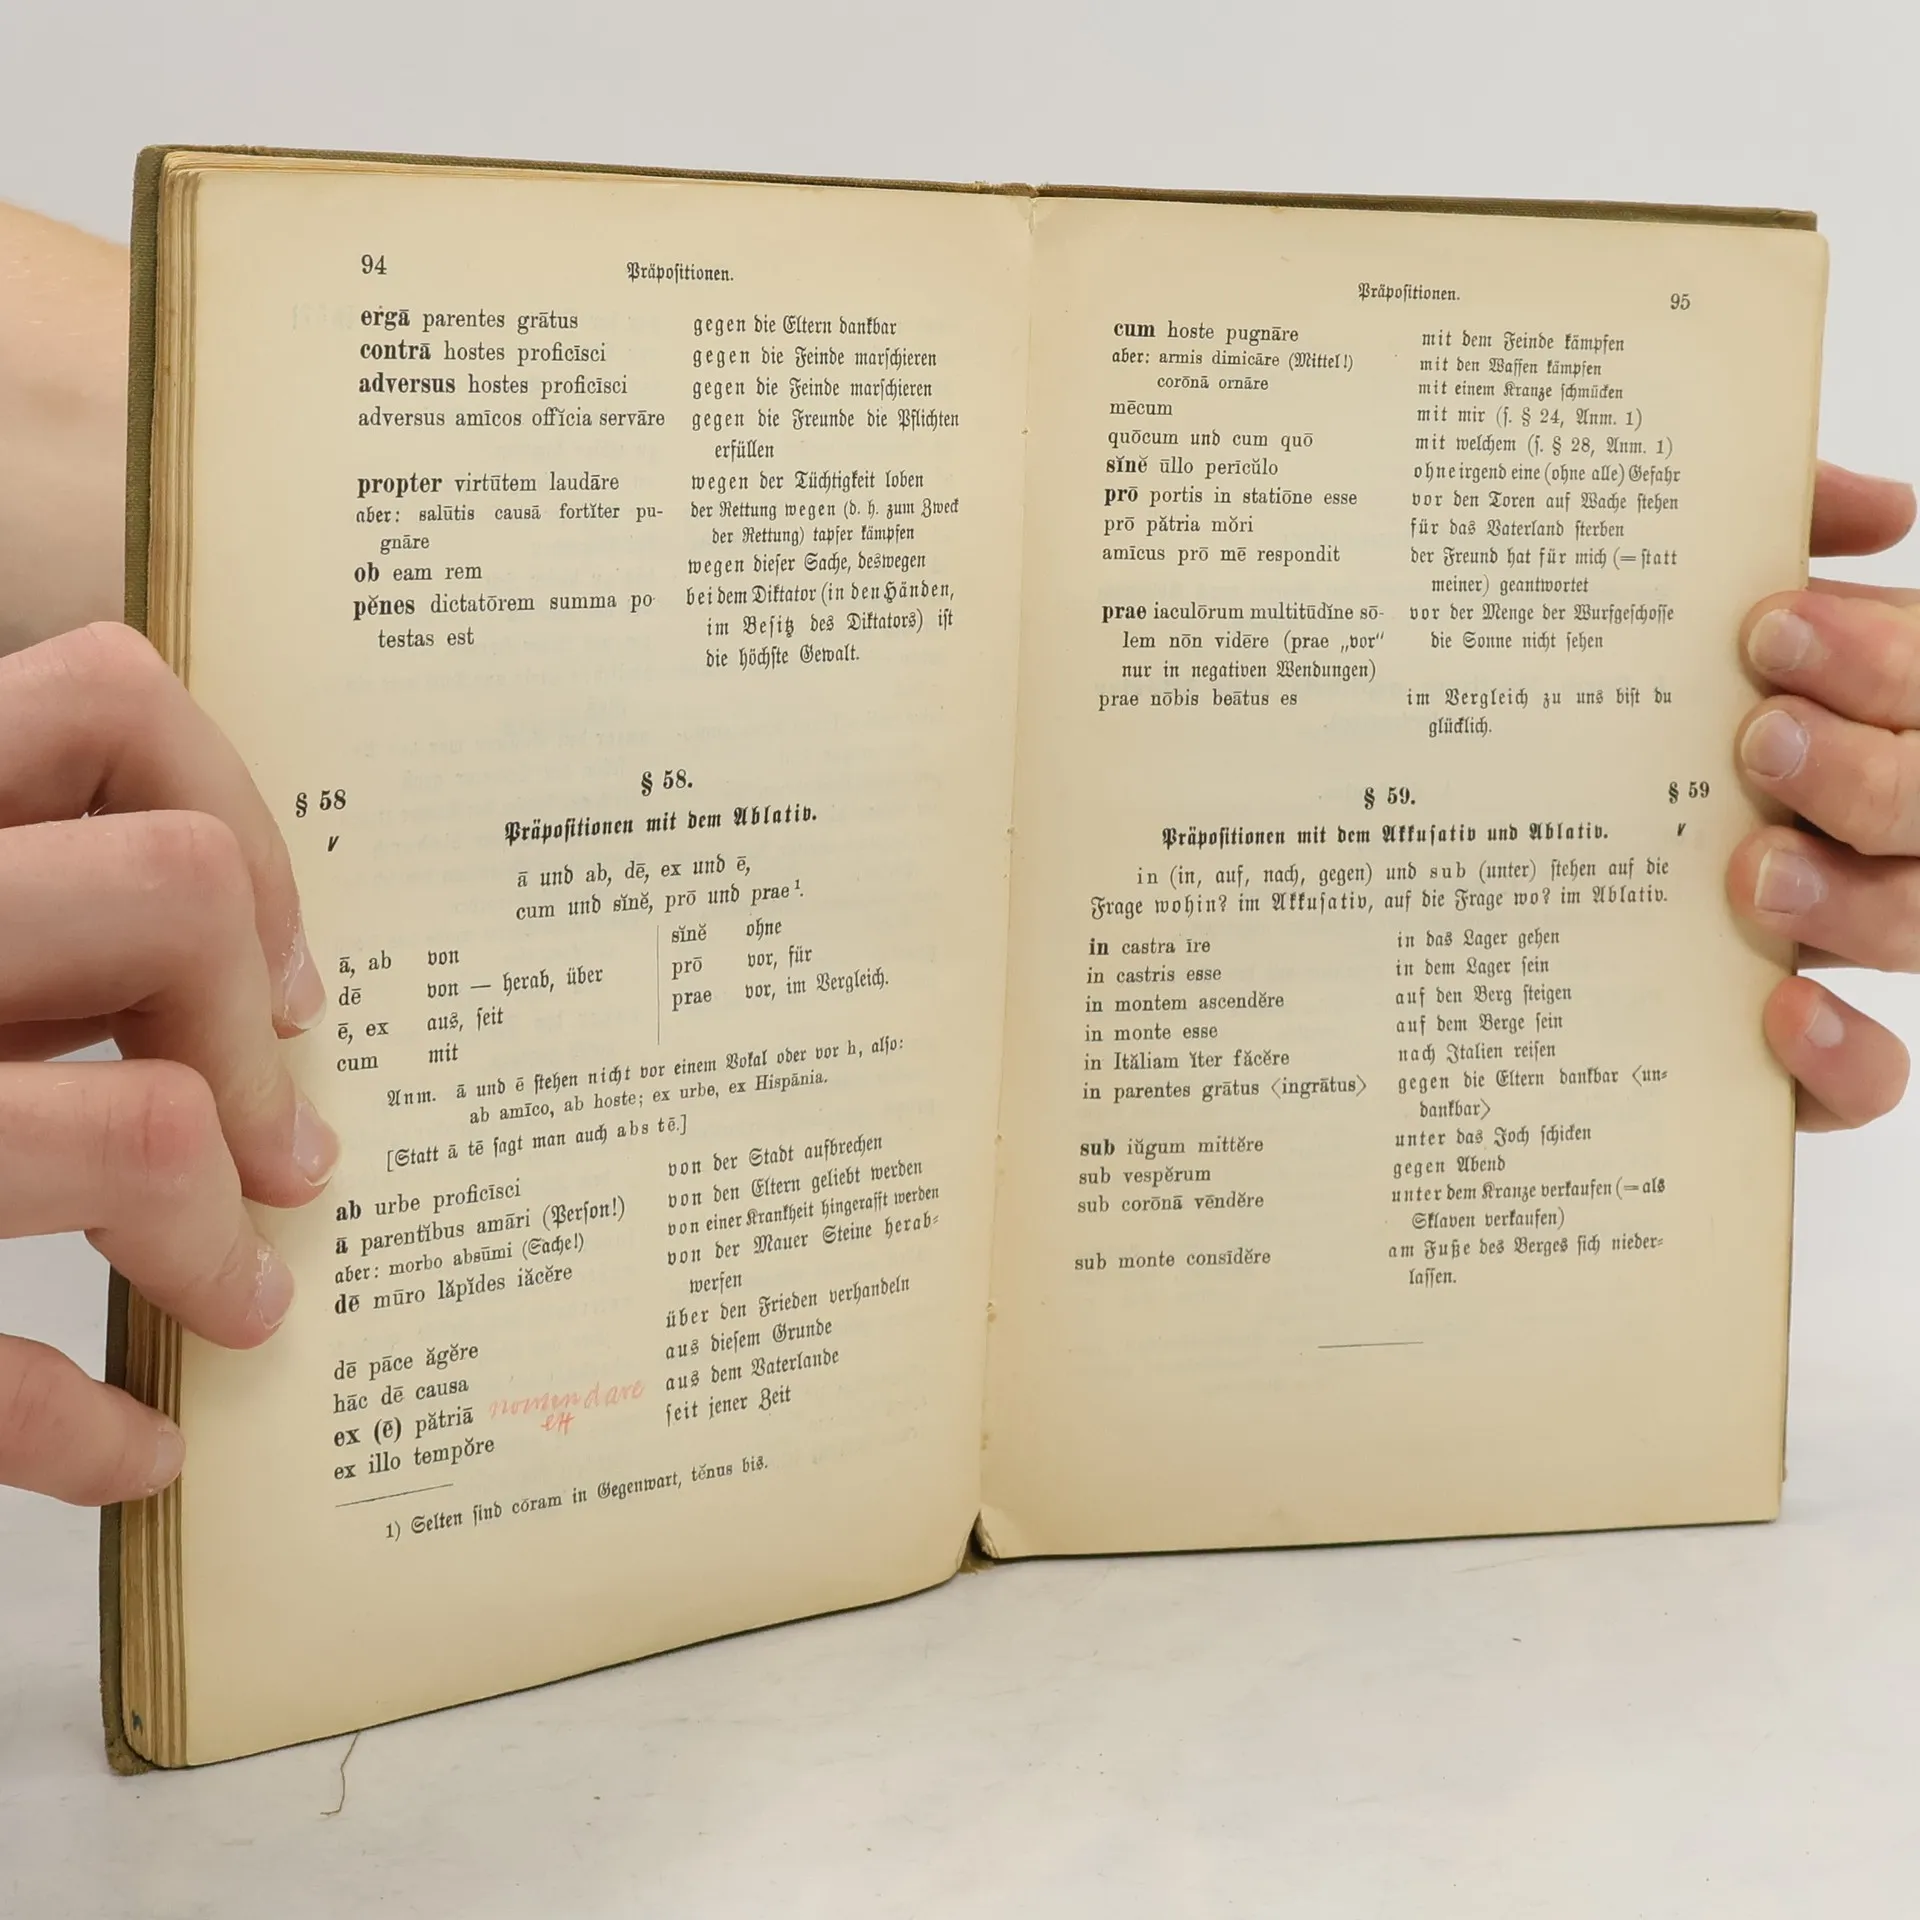 94
Präpoſitionen.
ergā parentes grātus gegen die Eltern dankbar
contrā hostes proficīsci gegen die Feinde marſchieren
adversus hostes proficīsci gegen die Feinde marſchieren
adversus amīcos offĭcia servāre gegen die Freunde die Pflichten
erfüllen
propter virtūtem laudāre wegen der Tüchtigkeit loben
aber: salūtis causā fortĭter pu- der Rettung wegen (d. h. zum Zweck
gnāre der Rettung) tapfer kämpfen
ob eam rem wegen dieſer Sache, deswegen
pĕnes dictatōrem summa po- bei dem Diktator (in den Händen,
testas est im Beſitz des Diktators) iſt
die höchſte Gewalt.
§ 58
§ 58.
Präpoſitionen mit dem Ablativ.
ā und ab, dē, ex und ē,
cum und sĭnĕ, prō und prae¹.
ā, ab von sĭnĕ ohne
dē von — herab, über prō vor, für
ē, ex aus, ſeit prae vor, im Vergleich.
cum mit
Anm. ā und ē ſtehen nicht vor einem Vokal oder vor h, alſo:
ab amīco, ab hoste; ex urbe, ex Hispānia.
[Statt ā tē ſagt man auch abs tē.]
ab urbe proficīsci von der Stadt aufbrechen
ā parentĭbus amāri (Perſon!) von den Eltern geliebt werden
aber: morbo absūmi (Sache!) von einer Krankheit hingerafft werden
dē mūro lăpĭdes iăcĕre von der Mauer Steine herab-
werfen
dē pāce ăgĕre über den Frieden verhandeln
hāc dē causa aus dieſem Grunde
ex (ē) pătriā aus dem Vaterlande
nomen dare
ex illo tempŏre ſeit jener Zeit
1) Selten ſind cōram in Gegenwart, tĕnus bis.
Präpoſitionen.
95
cum hoste pugnāre mit dem Feinde kämpfen
aber: armis dimicāre (Mittel!) mit den Waffen kämpfen
corōnā ornāre mit einem Kranze ſchmücken
mēcum mit mir (ſ. § 24, Anm. 1)
quōcum und cum quō mit welchem (ſ. § 28, Anm. 1)
sĭnĕ ūllo perīcŭlo ohne irgend eine (ohne alle) Gefahr
prō portis in statiōne esse vor den Toren auf Wache ſtehen
prō pătria mŏri für das Vaterland ſterben
amīcus prō mē respondit der Freund hat für mich (= ſtatt
meiner) geantwortet
prae iaculōrum multitūdĭne sō- vor der Menge der Wurfgeſchoſſe
lem nōn vidēre (prae „vor“ die Sonne nicht ſehen
nur in negativen Wendungen)
prae nōbis beātus es im Vergleich zu uns biſt du
glücklich.
§ 59.
§ 59
Präpoſitionen mit dem Akkuſativ und Ablativ.
in (in, auf, nach, gegen) und sub (unter) ſtehen auf die
Frage wohin? im Akkuſativ, auf die Frage wo? im Ablativ.
in castra īre in das Lager gehen
in castris esse in dem Lager ſein
in montem ascendĕre auf den Berg ſteigen
in monte esse auf dem Berge ſein
in Ităliam ĭter făcĕre nach Italien reiſen
in parentes grātus ⟨ingrātus⟩ gegen die Eltern dankbar ⟨un-
dankbar⟩
sub iŭgum mittĕre unter das Joch ſchicken
sub vespĕrum gegen Abend
sub corōnā vēndĕre unter dem Kranze verkaufen (= als
Sklaven verkaufen)
sub monte consīdĕre am Fuße des Berges ſich nieder-
laſſen.